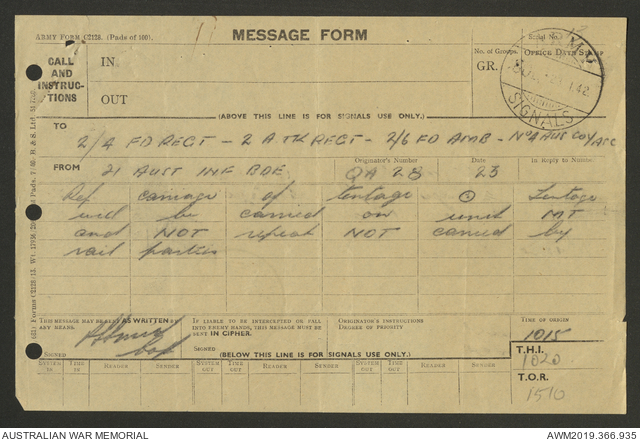 ARMY FORM C2128. (Pads of 100).
MESSAGE FORM
Serial No.
CALL
AND
INSTRUC-
TIONS
IN
OUT
No. of Groups.
GR.
OFFICE DATE STAMP
ARMY
SIGNALS
(ABOVE THIS LINE IS FOR SIGNALS USE ONLY.)
TO
2/4 FD REGT - 2 A TK REGT - 2/6 FD AMB - No 4 AUS COY/ASC
FROM
21 AUST INF BDE
Originator's Number
QA 28
Date
23
In Reply to Number
Ref carriage of tentage ⊙ Tentage
will be carried on unit MT
and NOT repeat NOT carried by
rail parties
THIS MESSAGE MAY BE SENT AS WRITTEN BY
ANY MEANS.
SIGNED
Capt
IF LIABLE TO BE INTERCEPTED OR FALL
INTO ENEMY HANDS, THIS MESSAGE MUST BE
SENT IN CIPHER.
SIGNED
ORIGINATOR'S INSTRUCTIONS
DEGREE OF PRIORITY
TIME OF ORIGIN
1015
(BELOW THIS LINE IS FOR SIGNALS USE ONLY.)
T.H.I.
1020
T.O.R.
1510
SYSTEM IN
TIME IN
READER
SENDER
SYSTEM OUT
TIME OUT
READER
SENDER
SYSTEM OUT
TIME OUT
READER
SENDER
AUSTRALIAN WAR MEMORIAL
AWM2019.366.935